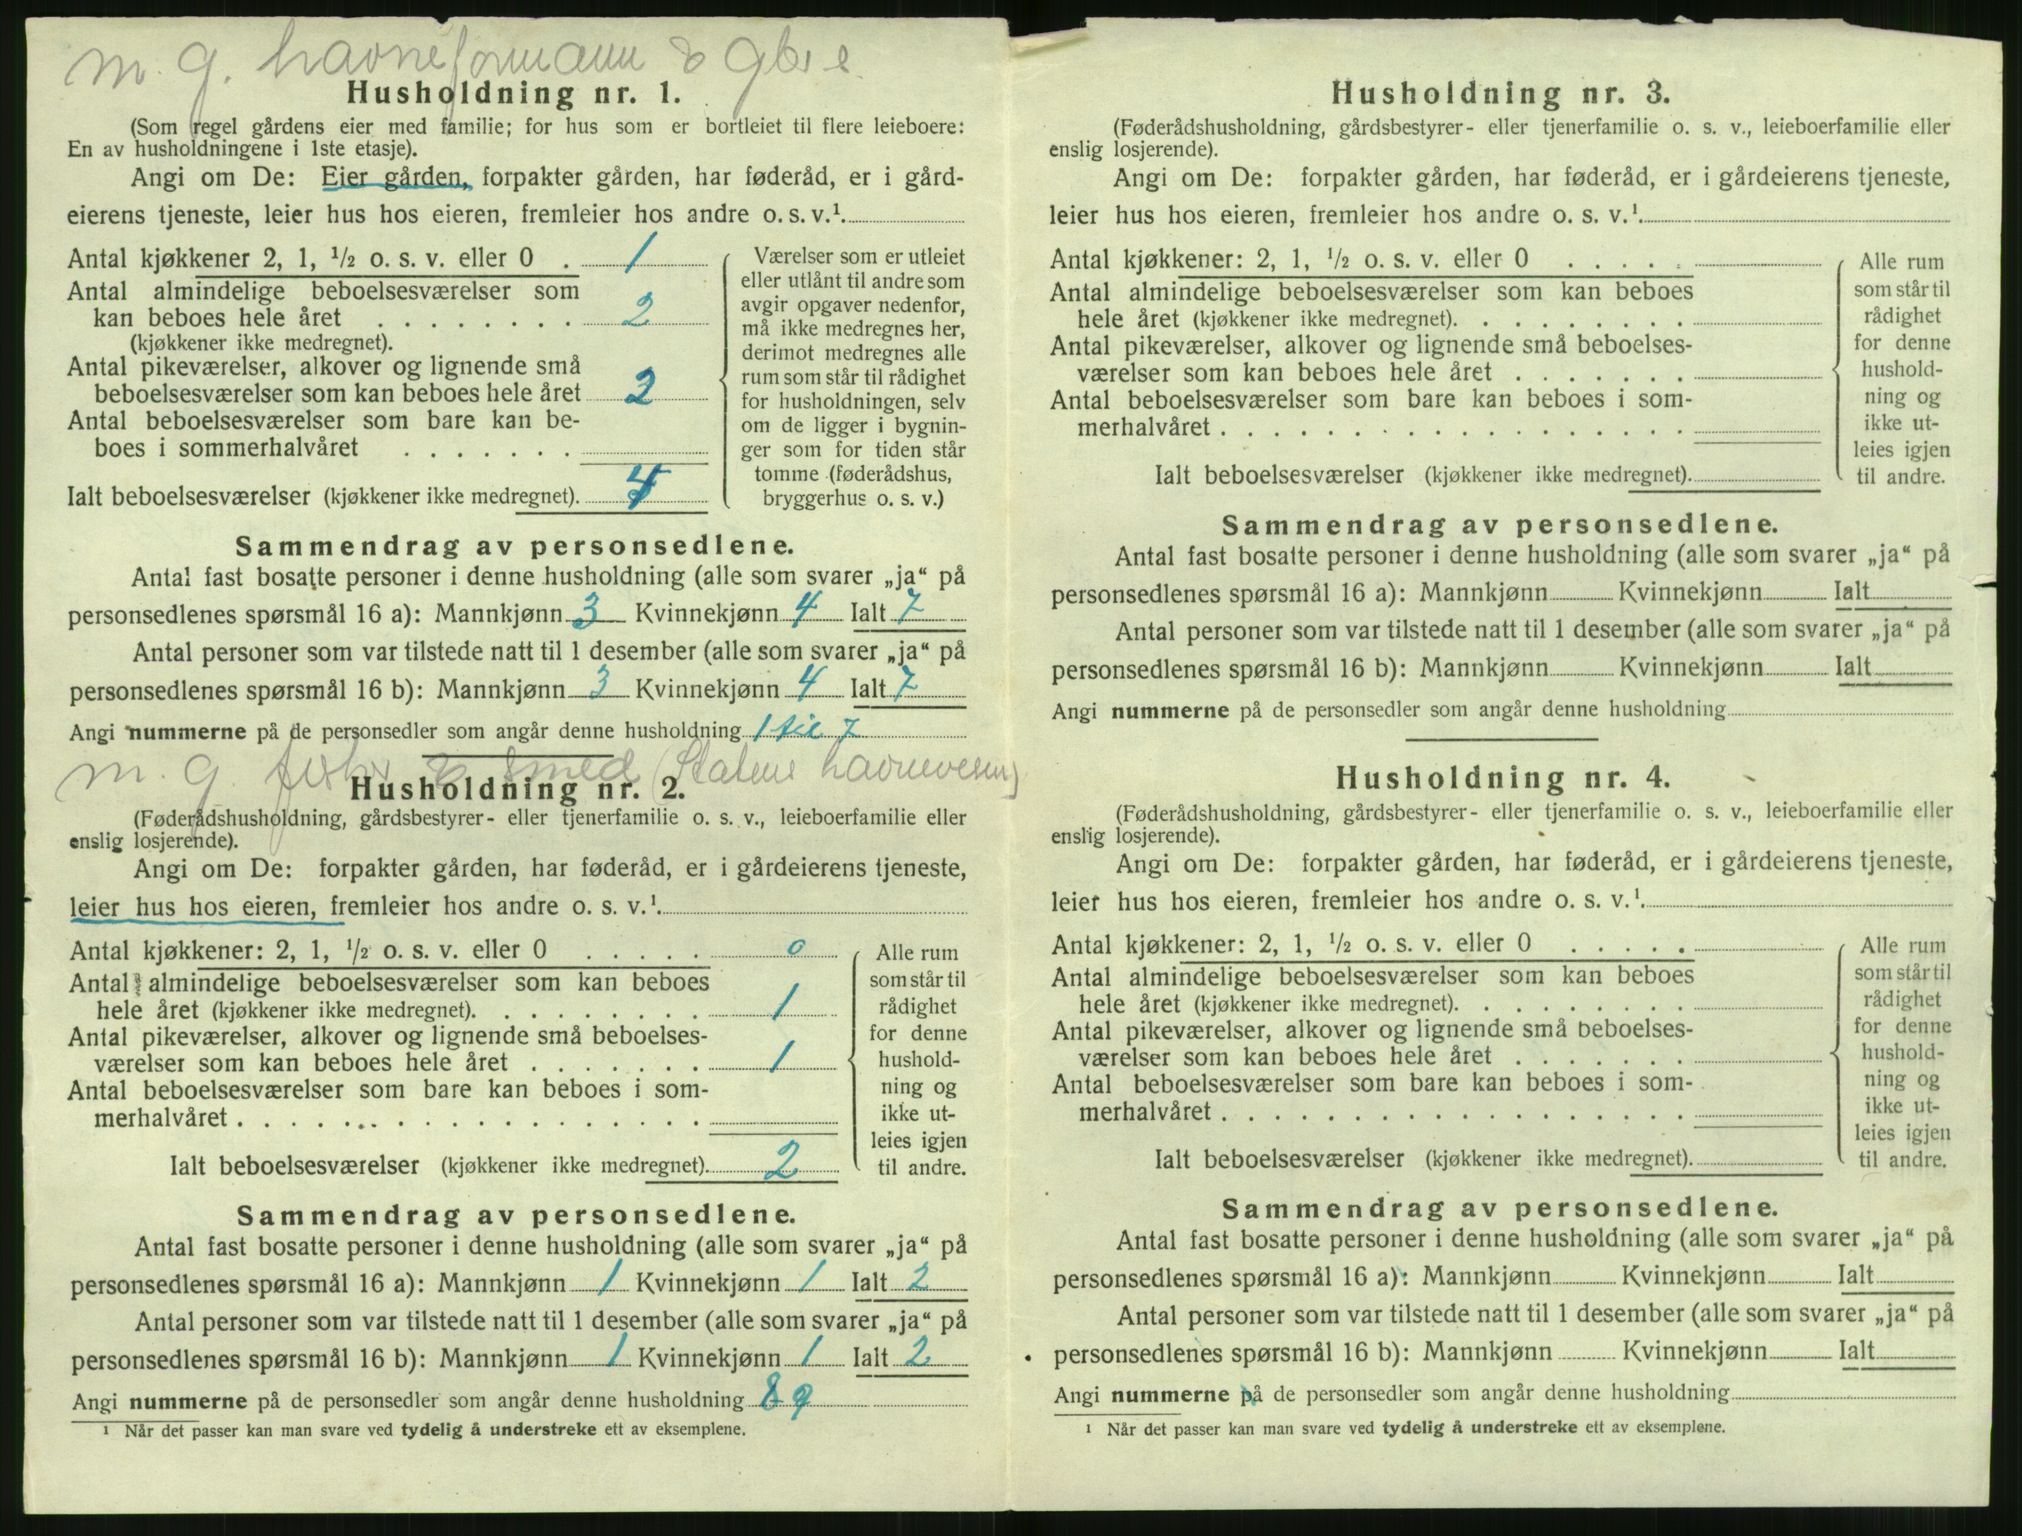 m. g. havneformann & gbr.e.
Husholdning nr. 1.
(Som regel gårdens eier med familie; for hus som er bortleiet til flere leieboere:
En av husholdningene i 1ste etasje).
Angi om De: Eier gården, forpakter gården, har føderåd, er i gård-
eierens tjeneste, leier hus hos eieren, fremleier hos andre o. s. v.¹.
Antal kjøkkener 2, 1, ½ o. s. v. eller 0 . 1
Antal almindelige beboelsesværelser som
kan beboes hele året . . . . . . . . 2
(kjøkkener ikke medregnet).
Antal pikeværelser, alkover og lignende små
beboelsesværelser som kan beboes hele året 2
Antal beboelsesværelser som bare kan be-
boes i sommerhalvåret . . . . . . .
Ialt beboelsesværelser (kjøkkener ikke medregnet). 4
Værelser som er utleiet
eller utlånt til andre som
avgir opgaver nedenfor,
må ikke medregnes her,
derimot medregnes alle
rum som står til rådighet
for husholdningen, selv
om de ligger i bygnin-
ger som for tiden står
tomme (føderådshus,
bryggerhus o. s. v.)
Sammendrag av personsedlene.
Antal fast bosatte personer i denne husholdning (alle som svarer „ja“ på
personsedlenes spørsmål 16 a): Mannkjønn 3 Kvinnekjønn 4 Ialt 7
Antal personer som var tilstede natt til 1 desember (alle som svarer „ja“ på
personsedlenes spørsmål 16 b): Mannkjønn 3 Kvinnekjønn 4 Ialt 7
Angi nummerne på de personsedler som angår denne husholdning 1 til 7
m. g. fisker & smed (Statens havnevesen)
Husholdning nr. 2.
(Føderådshusholdning, gårdsbestyrer- eller tjenerfamilie o. s. v., leieboerfamilie eller
enslig losjerende).
Angi om De: forpakter gården, har føderåd, er i gårdeierens tjeneste,
leier hus hos eieren, fremleier hos andre o. s. v.¹.
Antal kjøkkener: 2, 1, ½ o. s. v. eller 0 . . . . . 0
Antal almindelige beboelsesværelser som kan beboes
hele året (kjøkkener ikke medregnet). . . . . . . . . 1
Antal pikeværelser, alkover og lignende små beboelses-
værelser som kan beboes hele året . . . . . . . 1
Antal beboelsesværelser som bare kan beboes i som-
merhalvåret . . . . . . . . . . . . . . . . . .
Ialt beboelsesværelser (kjøkkener ikke medregnet). 2
Alle rum
som står til
rådighet
for denne
hushold-
ning og
ikke ut-
leies igjen
til andre.
Sammendrag av personsedlene.
Antal fast bosatte personer i denne husholdning (alle som svarer „ja“ på
personsedlenes spørsmål 16 a): Mannkjønn 1 Kvinnekjønn 1 Ialt 2
Antal personer som var tilstede natt til 1 desember (alle som svarer „ja“ på
personsedlenes spørsmål 16 b): Mannkjønn 1 Kvinnekjønn 1 Ialt 2
Angi nummerne på de personsedler som angår denne husholdning 8 9
¹ Når det passer kan man svare ved tydelig å understreke ett av eksemplene.
Husholdning nr. 3.
(Føderådshusholdning, gårdsbestyrer- eller tjenerfamilie o. s. v., leieboerfamilie eller
enslig losjerende).
Angi om De: forpakter gården, har føderåd, er i gårdeierens tjeneste,
leier hus hos eieren, fremleier hos andre o. s. v.¹.
Antal kjøkkener: 2, 1, ½ o. s. v. eller 0 . . . . .
Antal almindelige beboelsesværelser som kan beboes
hele året (kjøkkener ikke medregnet). . . . . . . . .
Antal pikeværelser, alkover og lignende små beboelses-
værelser som kan beboes hele året . . . . . . .
Antal beboelsesværelser som bare kan beboes i som-
merhalvåret . . . . . . . . . . . . . . . . . .
Ialt beboelsesværelser (kjøkkener ikke medregnet).
Alle rum
som står til
rådighet
for denne
hushold-
ning og
ikke ut-
leies igjen
til andre.
Sammendrag av personsedlene.
Antal fast bosatte personer i denne husholdning (alle som svarer „ja“ på
personsedlenes spørsmål 16 a): Mannkjønn Kvinnekjønn Ialt
Antal personer som var tilstede natt til 1 desember (alle som svarer „ja“ på
personsedlenes spørsmål 16 b): Mannkjønn Kvinnekjønn Ialt
Angi nummerne på de personsedler som angår denne husholdning
Husholdning nr. 4.
(Føderådshusholdning, gårdsbestyrer- eller tjenerfamilie o. s. v., leieboerfamilie eller
enslig losjerende).
Angi om De: forpakter gården, har føderåd, er i gårdeierens tjeneste,
leier hus hos eieren, fremleier hos andre o. s. v.¹.
Antal kjøkkener: 2, 1, ½ o. s. v. eller 0 . . . . .
Antal almindelige beboelsesværelser som kan beboes
hele året (kjøkkener ikke medregnet). . . . . . . . .
Antal pikeværelser, alkover og lignende små beboelses-
værelser som kan beboes hele året . . . . . . .
Antal beboelsesværelser som bare kan beboes i som-
merhalvåret . . . . . . . . . . . . . . . . . .
Ialt beboelsesværelser (kjøkkener ikke medregnet).
Alle rum
som står til
rådighet
for denne
hushold-
ning og
ikke ut-
leies igjen
til andre.
Sammendrag av personsedlene.
Antal fast bosatte personer i denne husholdning (alle som svarer „ja“ på
personsedlenes spørsmål 16 a): Mannkjønn Kvinnekjønn Ialt
Antal personer som var tilstede natt til 1 desember (alle som svarer „ja“ på
personsedlenes spørsmål 16 b): Mannkjønn Kvinnekjønn Ialt
Angi nummerne på de personsedler som angår denne husholdning
¹ Når det passer kan man svare ved tydelig å understreke ett av eksemplene.